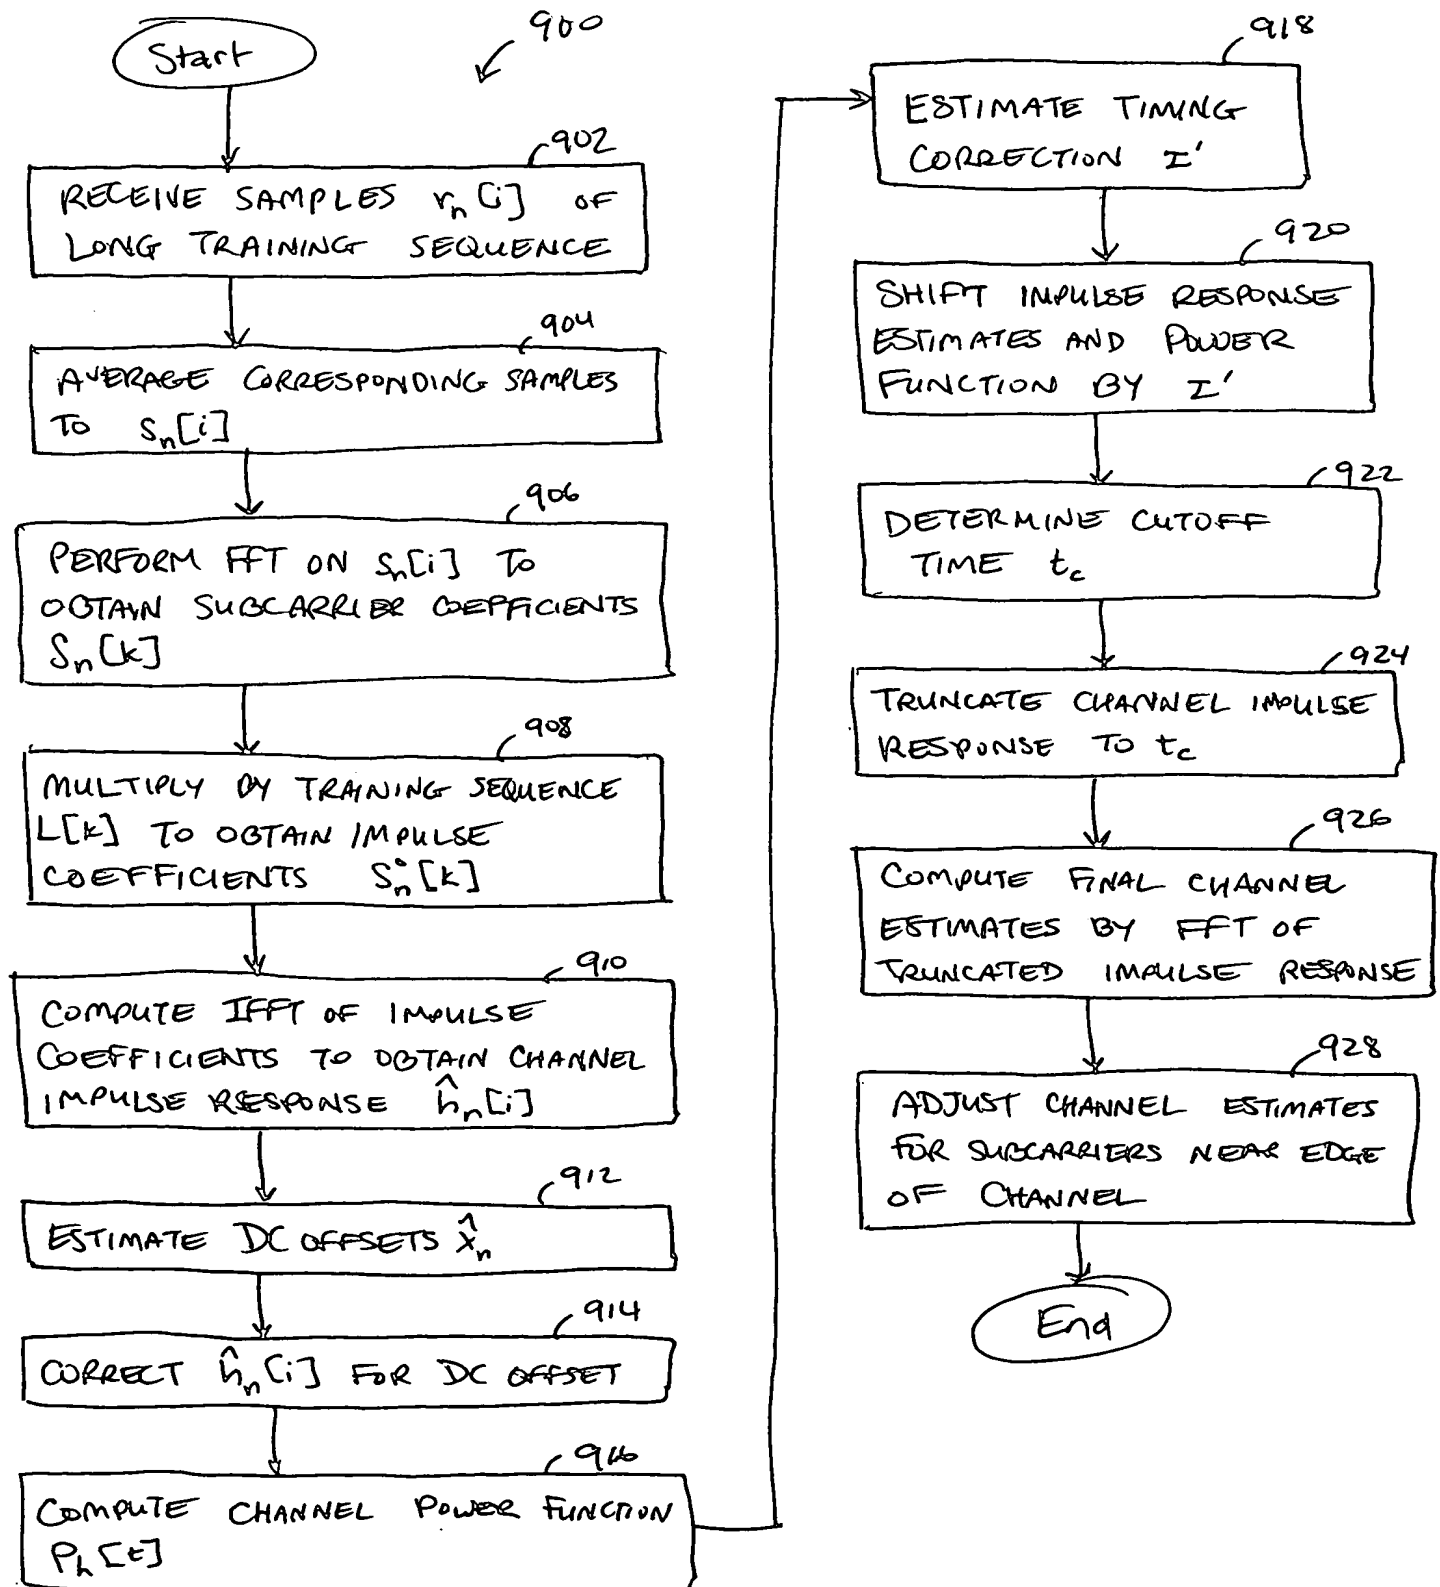 Start
900
902
RECEIVE SAMPLES rₙ[i] OF
LONG TRAINING SEQUENCE
904
AVERAGE CORRESPONDING SAMPLES
TO sₙ[i]
906
PERFORM FFT ON sₙ[i] TO
OBTAIN SUBCARRIER COEFFICIENTS
Sₙ[k]
908
MULTIPLY BY TRAINING SEQUENCE
L[k] TO OBTAIN IMPULSE
COEFFICIENTS Sₙ°[k]
910
COMPUTE IFFT OF IMPULSE
COEFFICIENTS TO OBTAIN CHANNEL
IMPULSE RESPONSE ĥₙ[i]
912
ESTIMATE DC OFFSETS x̂ₙ
914
CORRECT ĥₙ[i] FOR DC OFFSET
916
COMPUTE CHANNEL POWER FUNCTION
Pₕ[t]
918
ESTIMATE TIMING
CORRECTION I'
920
SHIFT IMPULSE RESPONSE
ESTIMATES AND POWER
FUNCTION BY I'
922
DETERMINE CUTOFF
TIME t_c
924
TRUNCATE CHANNEL IMPULSE
RESPONSE TO t_c
926
COMPUTE FINAL CHANNEL
ESTIMATES BY FFT OF
TRUNCATED IMPULSE RESPONSE
928
ADJUST CHANNEL ESTIMATES
FOR SUBCARRIERS NEAR EDGE
OF CHANNEL
End